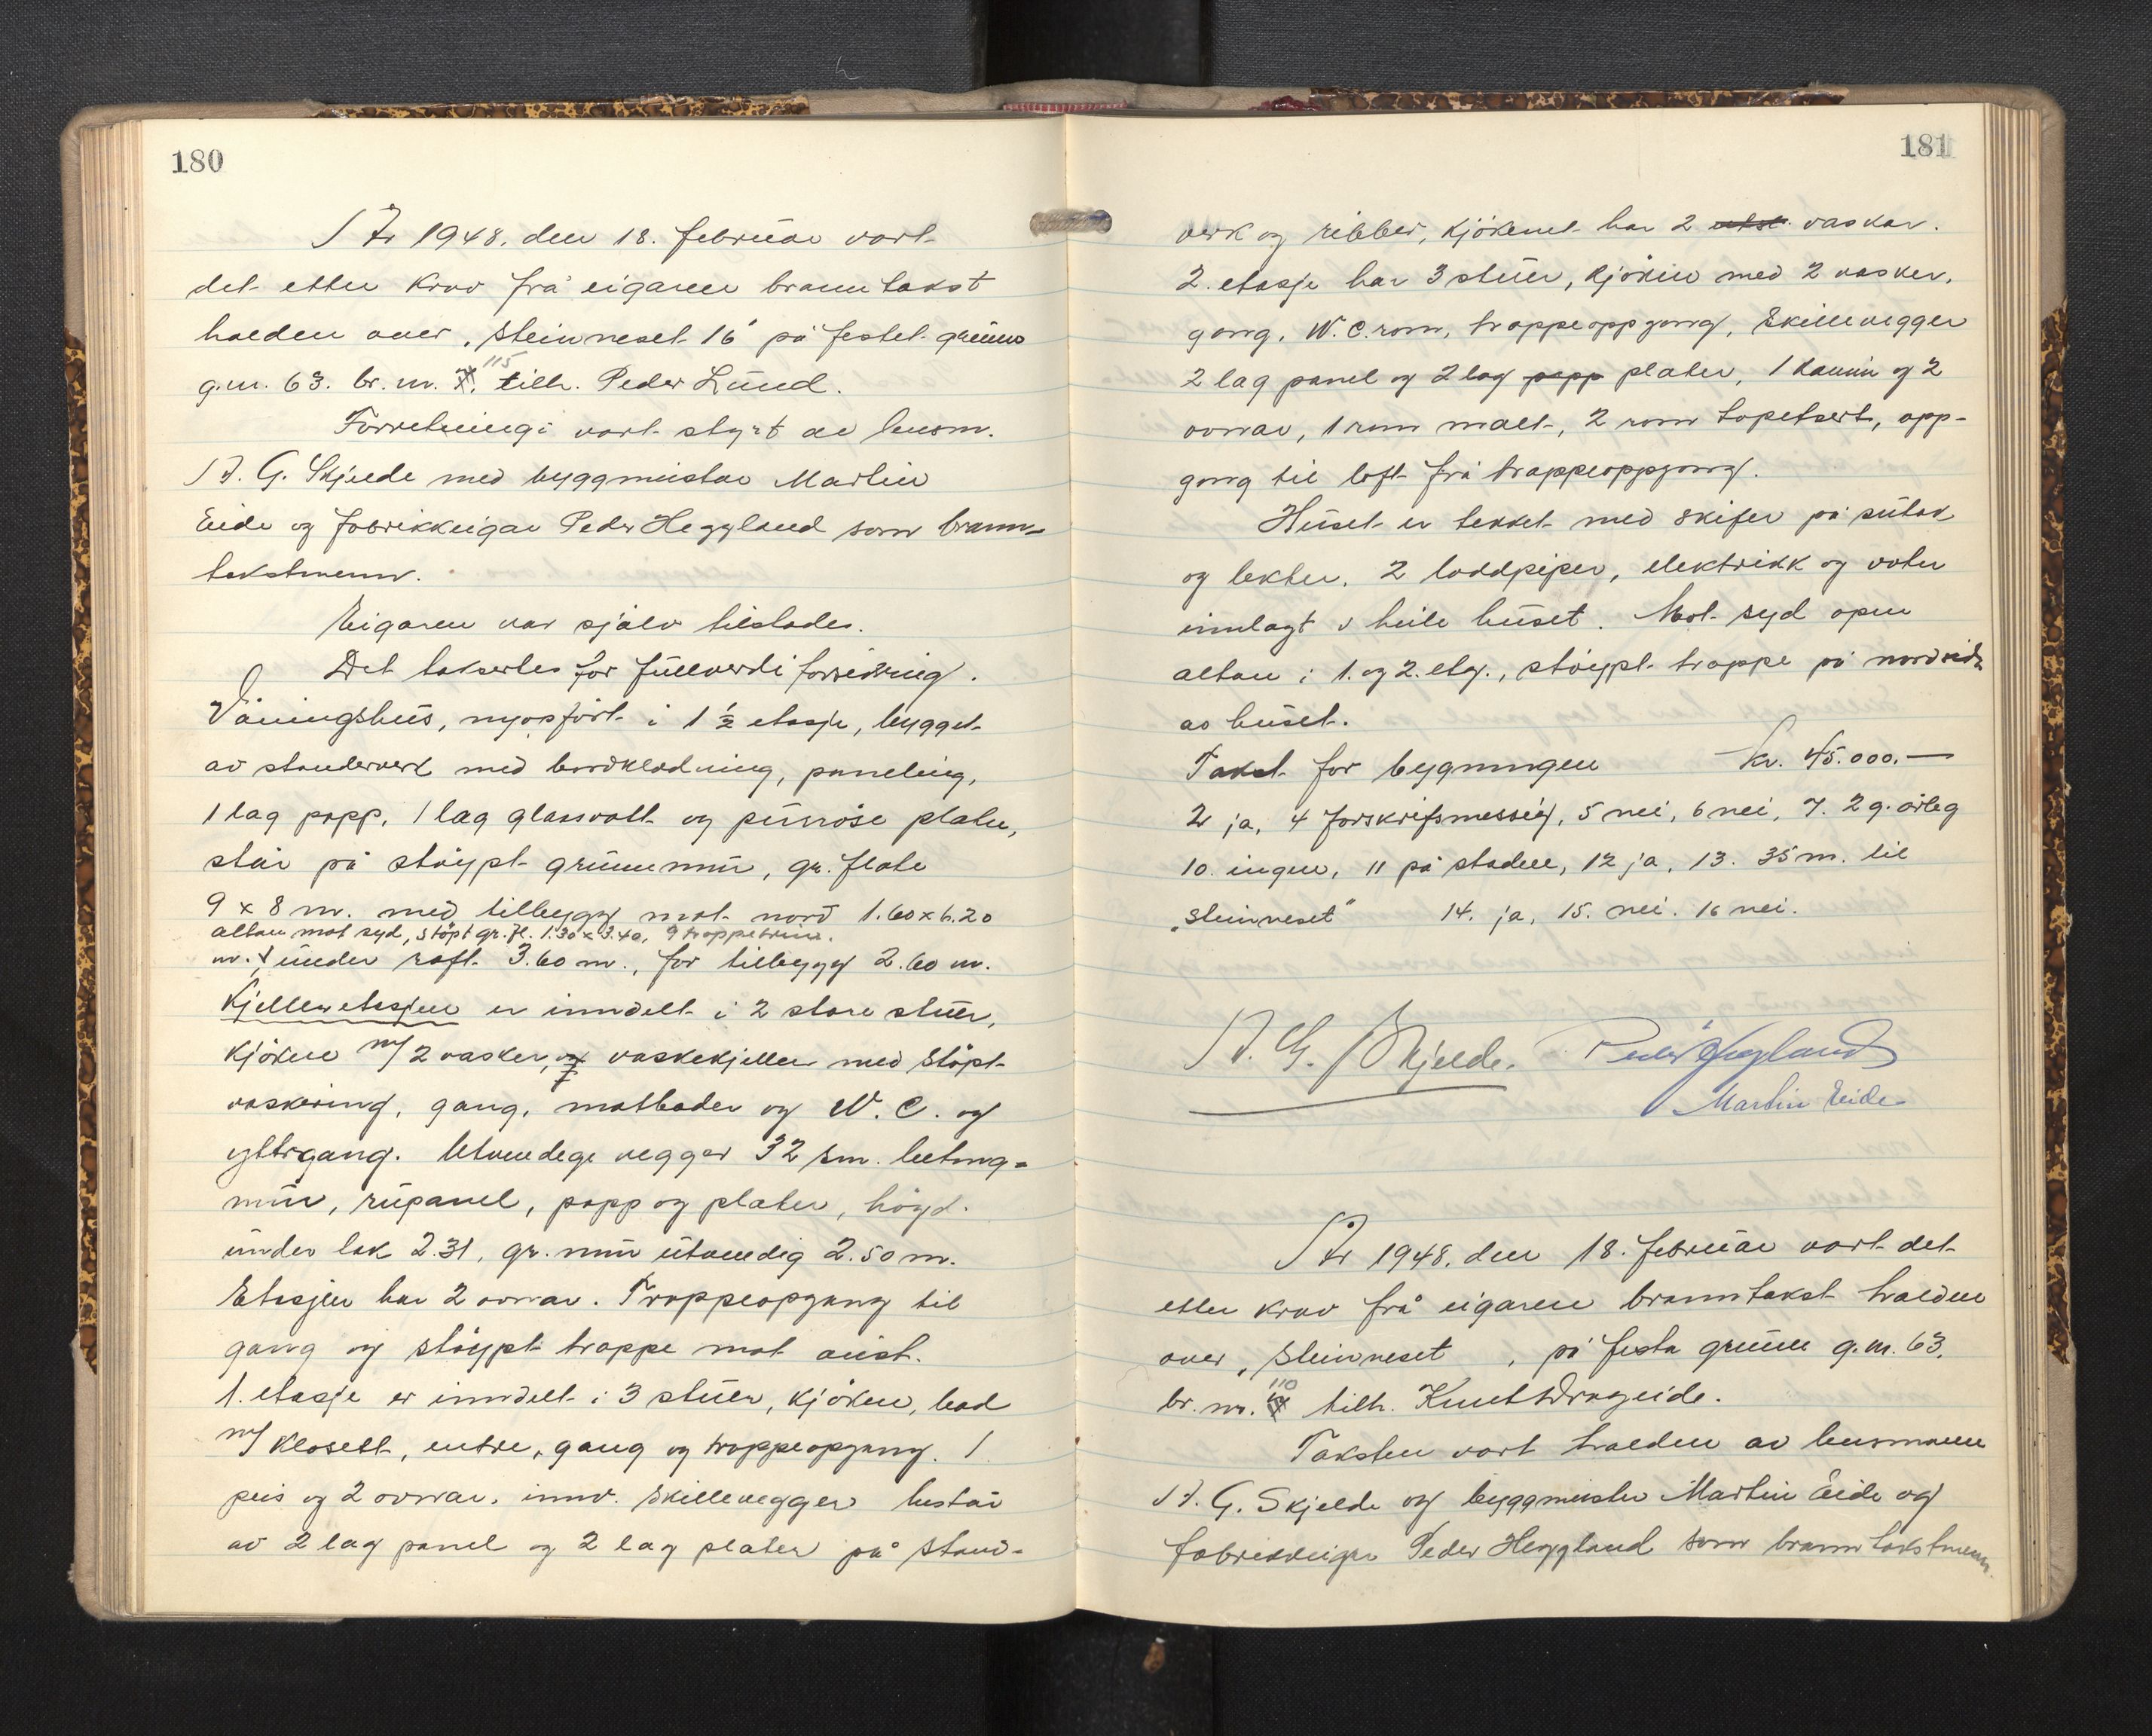 180
År 1948, den 18. februar vart
det etter krav frå eigaren branntakst
halden over „Steinneset 16" på festet grunn
g.nr. 63. br.nr. 115 tilh. Peder Lund.
Forretningi vart styrt av lensm.
A. G. Skjelde med byggmeistar Martin
Eide og fabrikkeigar Peder Heggland som brann-
takstmenn.
Eigaren var sjølv tilstades.
Det taksertes for fullverdi forsikring.
Våningshus, nyoppført i 1 1/2 etasje, bygget
av standerverk med bordkledning, paneling,
1 lag papp, 1 lag glassvatt og porøse plater,
står på støypt grunnmur, gr. flate
9 x 8 m. med tilbygg mot nord 1.60 x 6.20
altan mot syd, støpt gr. fl. 1.30 x 3.40, 9 trappetrinn.
m. under raft 3.60 m., for tilbygg 2.60 m.
Kjelleretasjen er inndelt i 2 store stuer,
kjøken m/ 2 vasker, og vaskekjeller med støpt
gang, matboder og W. C. og
yttrgang. Utvendige vegger 32 sm. betong-
mur, rupanel, papp og plater, høgd
under tak 2.31, gr. mur utvendig 2.50 m.
Etasjen har 2 ovnar. Trappeopgang til
gang og støypt trappe mot aust.
1. etasje er inndelt i 3 stuer, kjøken, bad
m/ klosett, entre, gang og trappeopgang. 1
peis og 2 ovnar. innv. skillevegger består
av 2 lag panel og 2 lag plater på stand-
181
verk og ribber, kjøkenet har 2 vaskar.
2. etasje har 3 stuer, kjøken med 2 vasker,
gang, W. C. rom, trappeoppgang, Skillevegger
2 lag panel og 2 lag papp plater, 1 kamin og 2
ovnar, 1 rom malt, 2 rom tapetsert, opp-
gang til loft frå trappeoppgang.
Huset er tekket med skifer på sutak
og lekter. 2 loddpiper, elektrikk og vatn
innlagt i heile huset. Mot syd open
altan i 1. og 2. etg., støypt trappe på nordsida
av huset.
Takst for bygningen kr. 45.000.—
2 ja, 4 forskrifsmessig, 5 nei, 6 nei, 7. 2 g. årleg
10. ingen, 11 på staden, 12 ja, 13. 35 m. til
„Steinneset" 14. ja, 15. nei. 16 nei.
A. G. Skjelde. Peder Heggland
Martin Eide
År 1948, den 18. februar vart det
etter krav frå eigaren branntakst halden
over „Steinneset , på festa grunn g.nr. 63,
br. nr. 110 tilh. Knut Drageide.
Taksten vart halden av lensmann
A. G. Skjelde og byggmeister Martin Eide og
fabrikkeigar Peder Heggland som branntakstmenn.